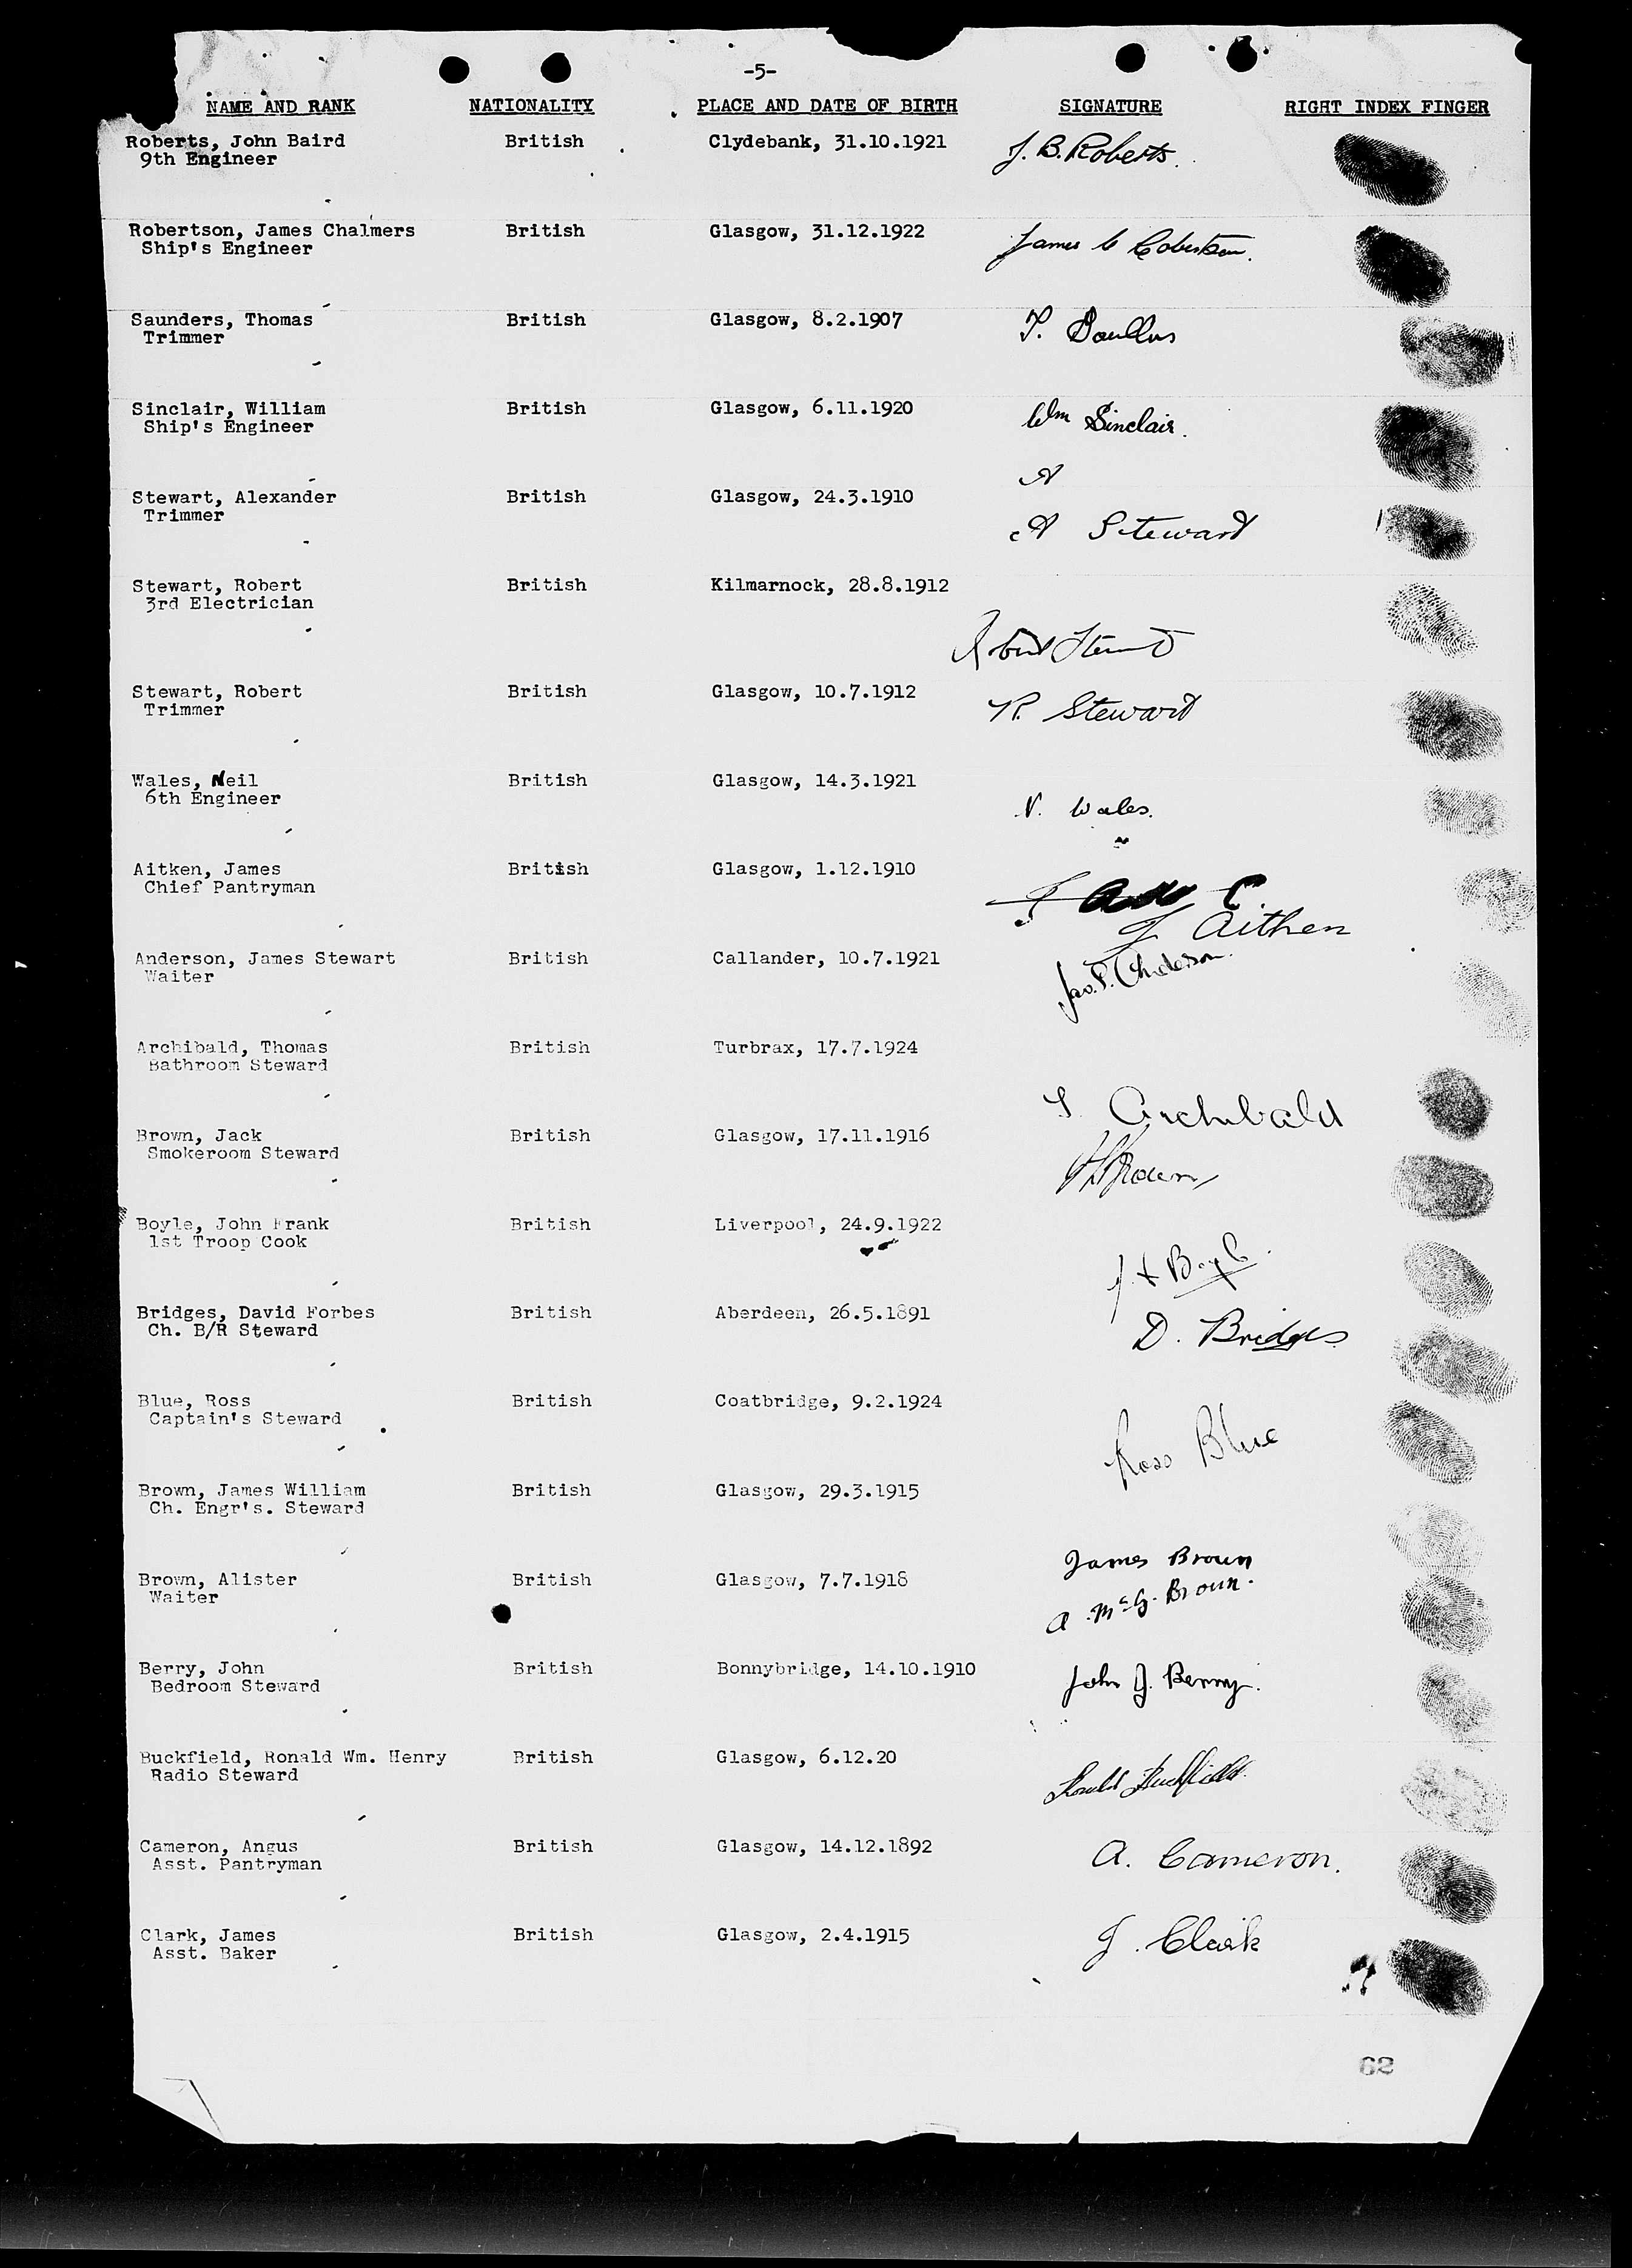 -5-
NAME AND RANK NATIONALITY PLACE AND DATE OF BIRTH SIGNATURE RIGHT INDEX FINGER
Roberts, John Baird British Clydebank, 31.10.1921 J. B. Roberts.
9th Engineer
Robertson, James Chalmers British Glasgow, 31.12.1922 James C Robertson.
Ship's Engineer
Saunders, Thomas British Glasgow, 8.2.1907 T.
Trimmer
Sinclair, William British Glasgow, 6.11.1920 Wm Sinclair.
Ship's Engineer
A
Stewart, Alexander British Glasgow, 24.3.1910 A Steward
Trimmer
Stewart, Robert British Kilmarnock, 28.8.1912
3rd Electrician
Robert Stewart
Stewart, Robert British Glasgow, 10.7.1912 R. Stewart
Trimmer
Wales, Neil British Glasgow, 14.3.1921
6th Engineer N. Wales.
Aitken, James British Glasgow, 1.12.1910
Chief Pantryman
J Aitken
Anderson, James Stewart British Callander, 10.7.1921 Jas. S. Anderson.
Waiter
Archibald, Thomas British Turbrax, 17.7.1924
Bathroom Steward
T. Archibald
Brown, Jack British Glasgow, 17.11.1916
Smokeroom Steward Brown
Boyle, John Frank British Liverpool, 24.9.1922
1st Troop Cook
J F Boyle
Bridges, David Forbes British Aberdeen, 26.5.1891
Ch. B/R Steward D. Bridges
Blue, Ross British Coatbridge, 9.2.1924
Captain's Steward
Ross Blue
Brown, James William British Glasgow, 29.3.1915
Ch. Engr's. Steward
James Brown
Brown, Alister British Glasgow, 7.7.1918
Waiter A. McG. Brown.
Berry, John British Bonnybridge, 14.10.1910
Bedroom Steward John J. Berry.
Buckfield, Ronald Wm. Henry British Glasgow, 6.12.20
Radio Steward Ronald Buckfield
Cameron, Angus British Glasgow, 14.12.1892 A. Cameron.
Asst. Pantryman
Clark, James British Glasgow, 2.4.1915 J. Clark
Asst. Baker
62